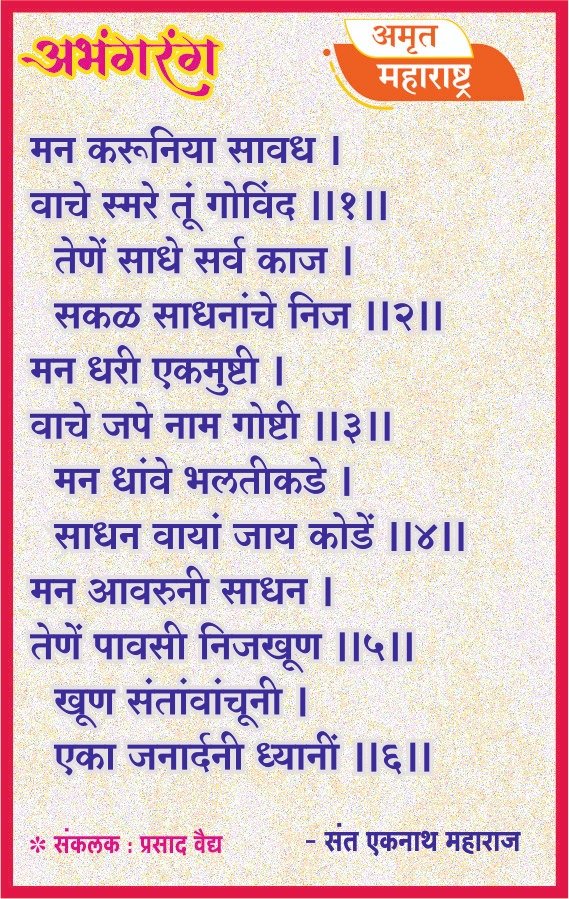 अभंगरंग
अमृत
महाराष्ट्र
मन करूनिया सावध ।
वाचे स्मरे तूं गोविंद ।।१।।
तेणें साधे सर्व काज ।
सकळ साधनांचे निज ।।२।।
मन धरी एकमुष्टी ।
वाचे जपे नाम गोष्टी ।।३।।
मन धांवे भलतीकडे ।
साधन वायां जाय कोडें ।।४।।
मन आवरुनी साधन ।
तेणें पावसी निजखूण ।।५।।
खूण संतांवांचूनी ।
एका जनार्दनी ध्यानीं ।।६।।
* संकलक : प्रसाद वैद्य
- संत एकनाथ महाराज